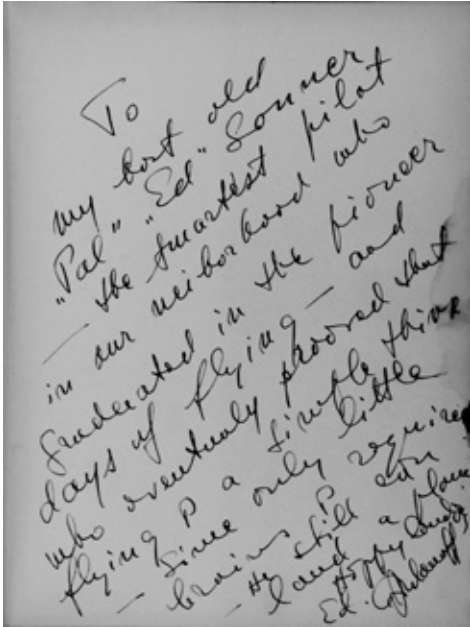 To
my best old
"Pal" "Ed" Sonner
— the smartest pilot
in our neiborhood who
graduated in the pioneer
days of flying — and
who eventualy prooved that
flying is a simple thing
— since only require
brains? 
— He still can
land a plane
Happy
Ed.